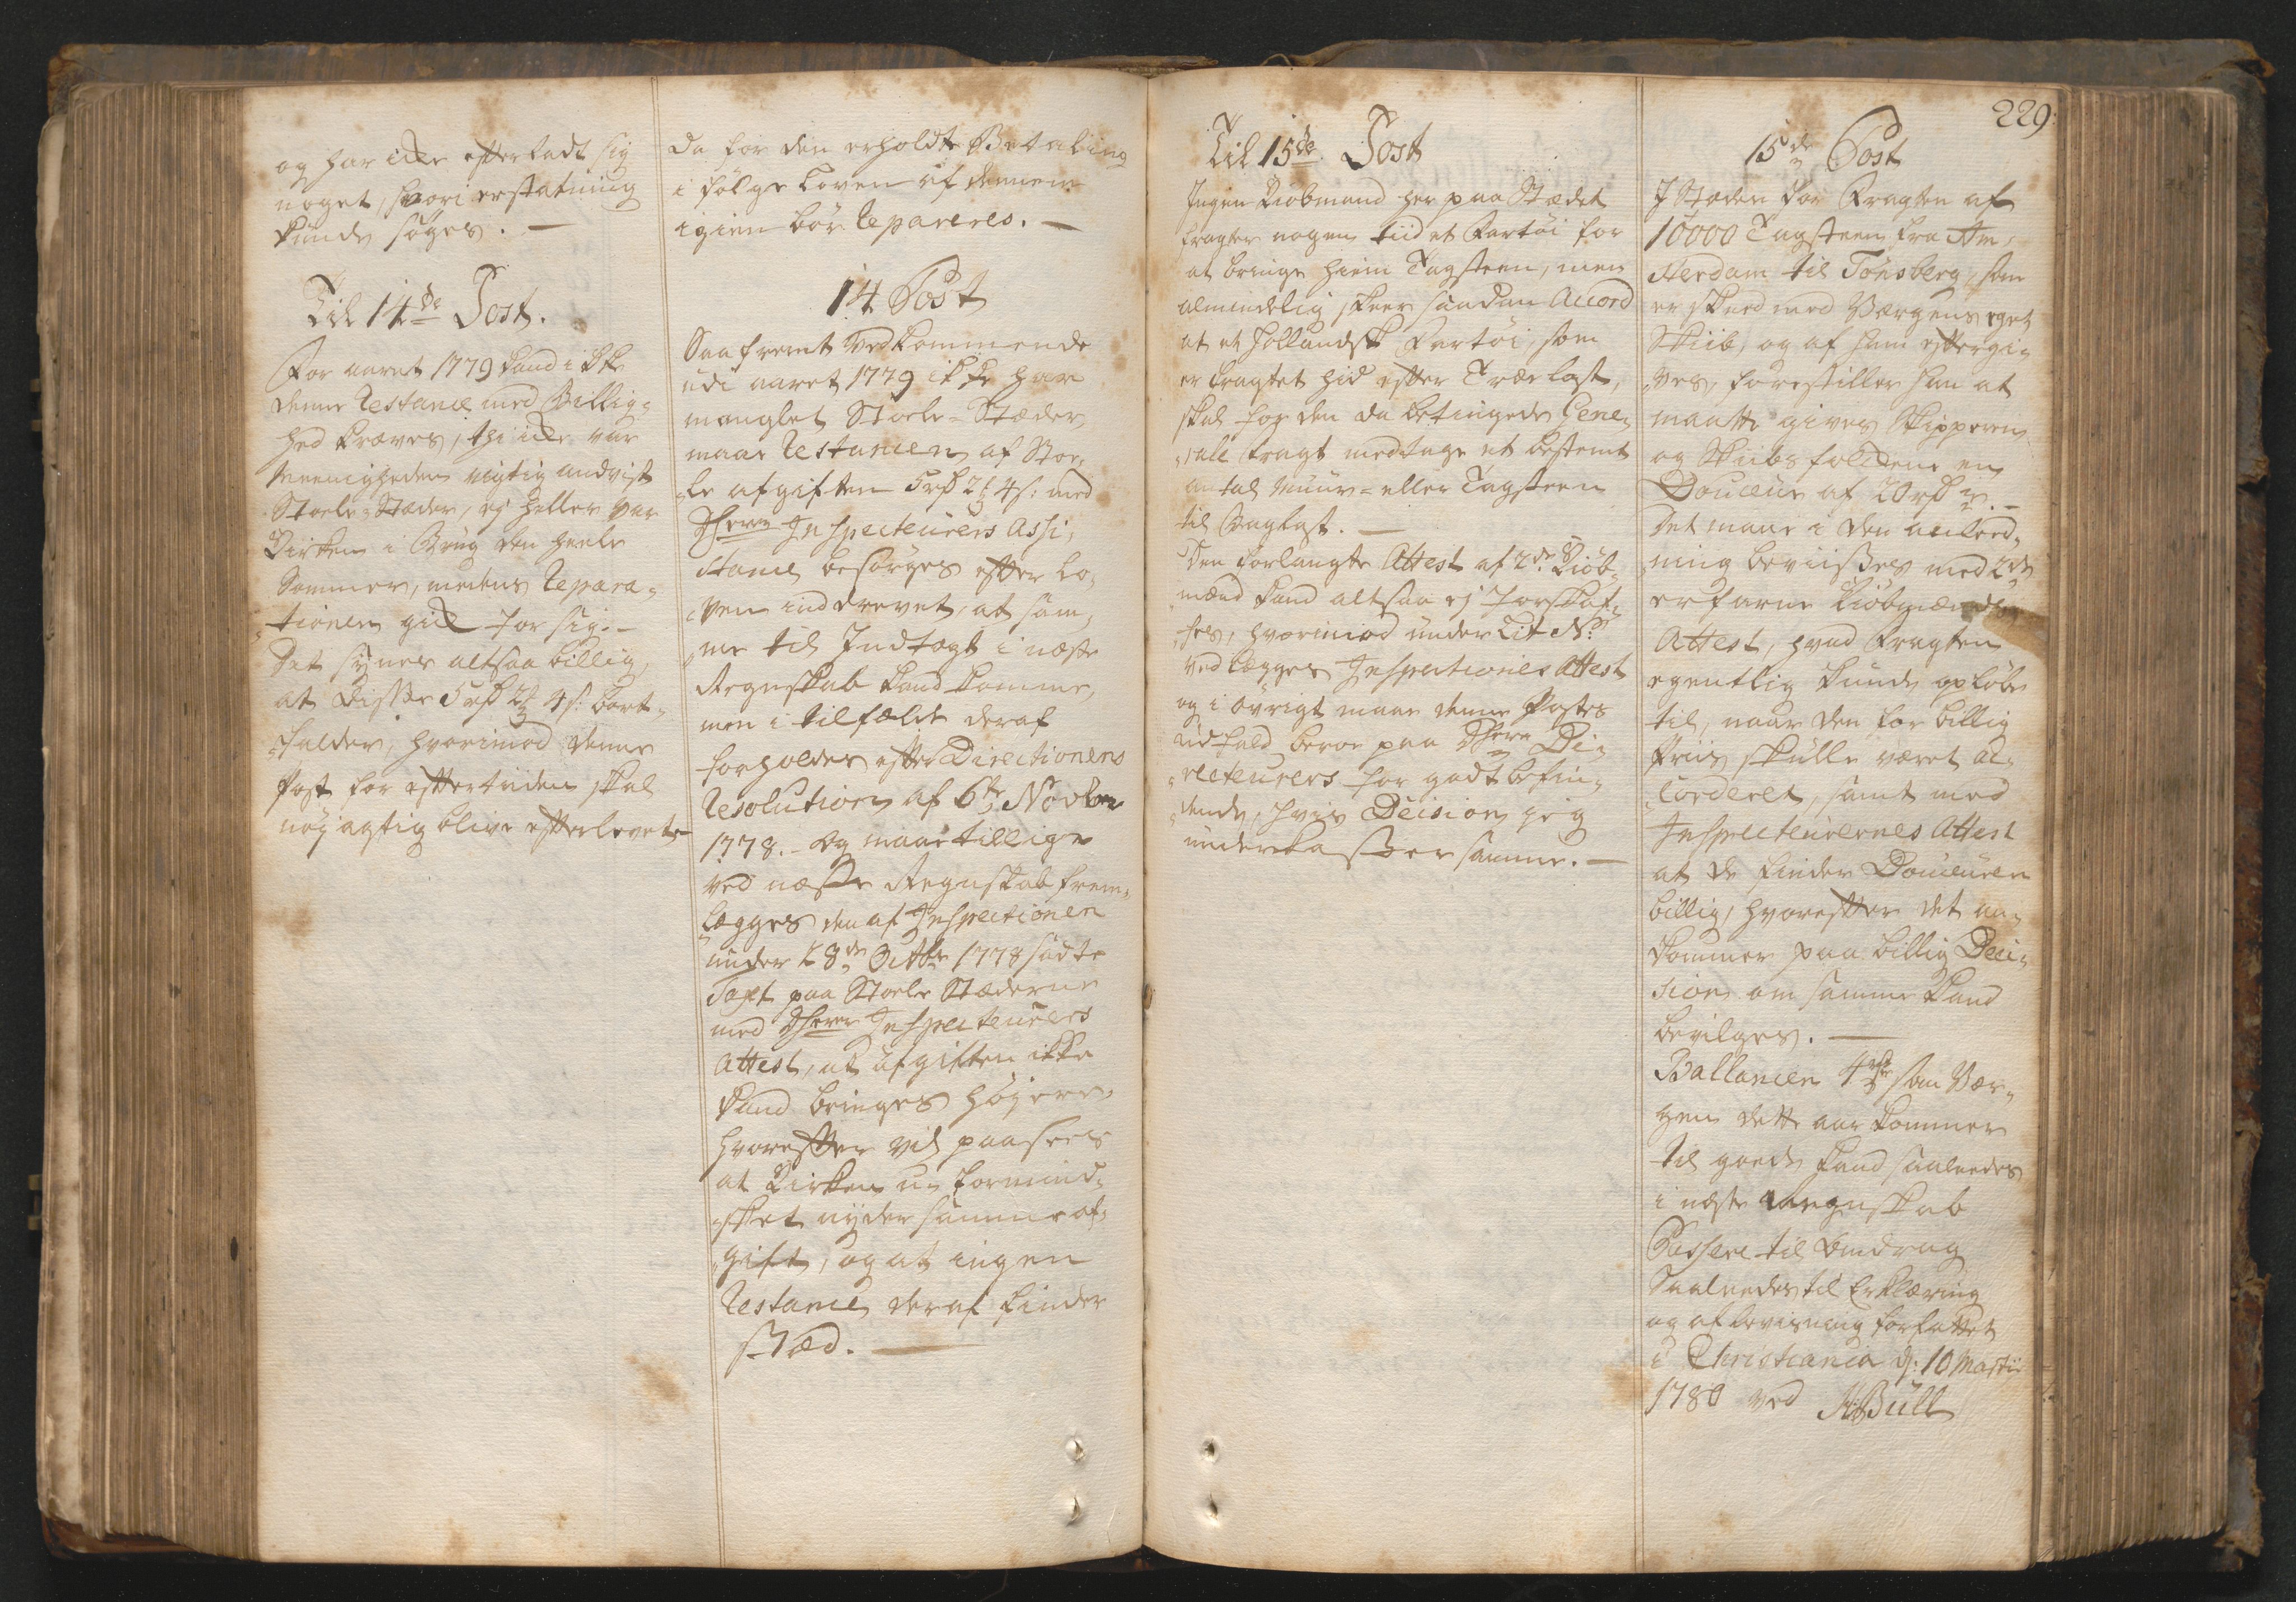 og har icke efterladt sig
noget, hvori erstatning
kunde søges. —
Til 14de Post.
For aaret 1779 kand ikke
denne Restance med Billig-
hed kræves, thi icke var
Meenigheden rigtig andvist
Stoele-Stæder, ej heller var
Kirken i Brug den heele
Sommer, medens Repara-
tionen gik for sig. —
Det synes altsaa billig,
at disse 5 rd 2 4 s: bort-
falder, hvorimod denne
Post for eftertiden skal
nøjagtig blive efterlevet
da for den erholdte Betaling
i følge Loven af dennem
igien bør Repareres. —
14 Post
Saafremt Vedkommende
udi aaret 1779 ikke har
manglet Stoele-Stæder
maae Restancen af Stoe-
le afgiften 5 rd 2 4 s: med
Hherrer Inspecteurers Assi-
stance besørges efter Lo-
ven inddrevet, at sam-
me til Indtægt i næste
Regnskab kand komme,
men i tilfælde deraf
forholdes efter Directionens
Resolution af 6te Novbr
1778. – Og maae tillige
ved næste Regnskab frem-
lægges den af Inspectionen
under 28de Octbr 1778 satte
Taxt paa Stoele Stæderne
med Hherrer Inspecteurers
Attest, at afgiften ikke
kand bringes høyere,
hvorefter vil paasees
at Kirken u-formind-
sket nyder samme af-
gift, og at ingen
Restance deraf finder
stæd. —
Til 15de Post
Ingen Kiøbmand her paa Stædet
fragter nogen tiid et Fartøi for
at bringe hiem Tagsteen, men
almindelig skeer saadan Accord
at et Hollandsk Fartøi, som
er fragtet hid efter Trælast,
skal for den da betingede Gene-
rale fragt medtage et bestemt
antal Muur- eller Tagsteen
til Baglast. —
Den forlangte Attest af 2de Kiøb-
mænd kand altsaa ej forskaf-
fes, hvorimod under Lit N:
vedlægges Inspectionens Attest
og i øvrigt maae denne Postes
udfald beroe paa Hherrer Di-
recteurers for godt befin-
dende, hvis Decision jeg
underkaster samme. —
229
15de Post
I Stæden for Fragten af
10000 Tagsteen fra Am-
sterdam til Tönsberg, som
er skeed med Værgens eget
Skiib, og af ham eftergi-
ves, forestiller han at
maatte gives Skipperen
og Skibsfolkene en
Douceur af 20 rd. —
Det maae i den anleed-
ning beviises med 2de
erfarne Kiøbmænds
Attest, hvad Fragten
egentlig kunde opløbe
til, naar den for billig
Priis skulle været ac-
corderet, samt med
Inspecteurernes Attest
at de finder Douceuren
billig, hvorefter det an-
kommer paa billig Deci-
sion om samme kand
bevilges. —
Ballancen 4 som Vær-
gen dette aar kommer
til gode kand saaledes
i næste Regnskab
Passere til Uddrag
Saaledes til Erklæring
og afbevisning forfattet
i Christiania d: 10 Martii
1780 ved Bull